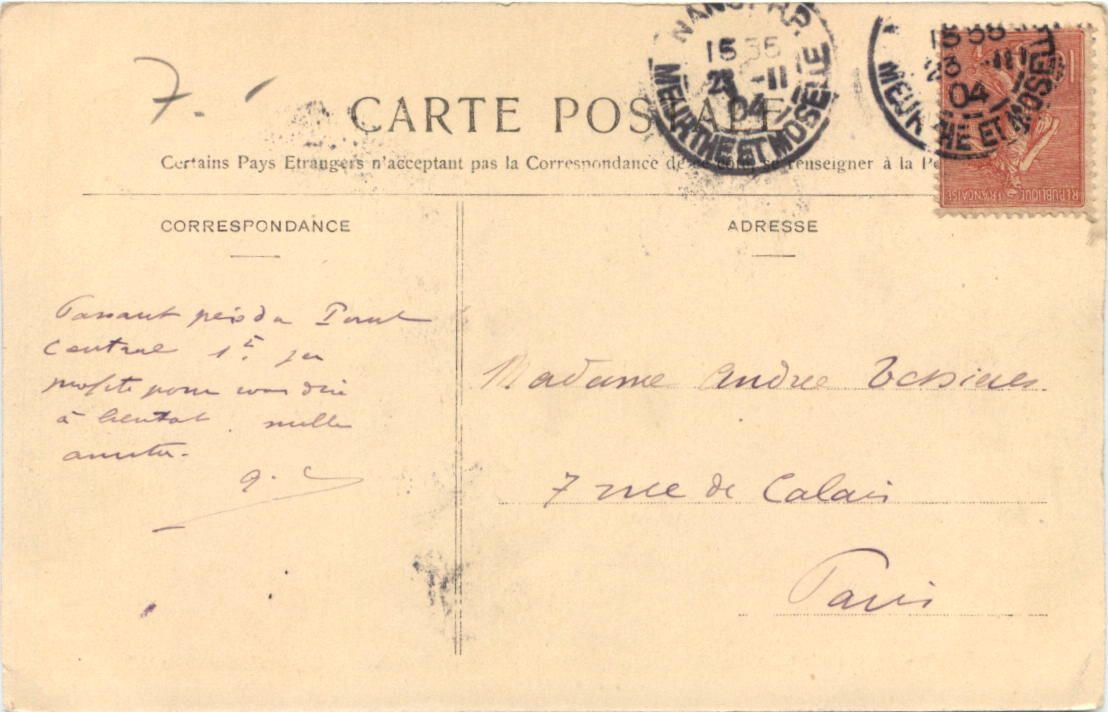 7.
CARTE POSTALE
Certains Pays Etrangers n'acceptant pas la Correspondance de ce côté, se renseigner à la
NANCY R.P.
15 35
-11
04
MEURTHE ET MOSELLE
15 35
-11
04
MEURTHE ET MOSELLE
REPUBLIQUE FRANÇAISE
CORRESPONDANCE
ADRESSE
Passant près du Point
Central 1er j'en
profite pour vous dire
à bientot. mille
amitiés.
Madame Andrée
7 rue de Calais
Paris